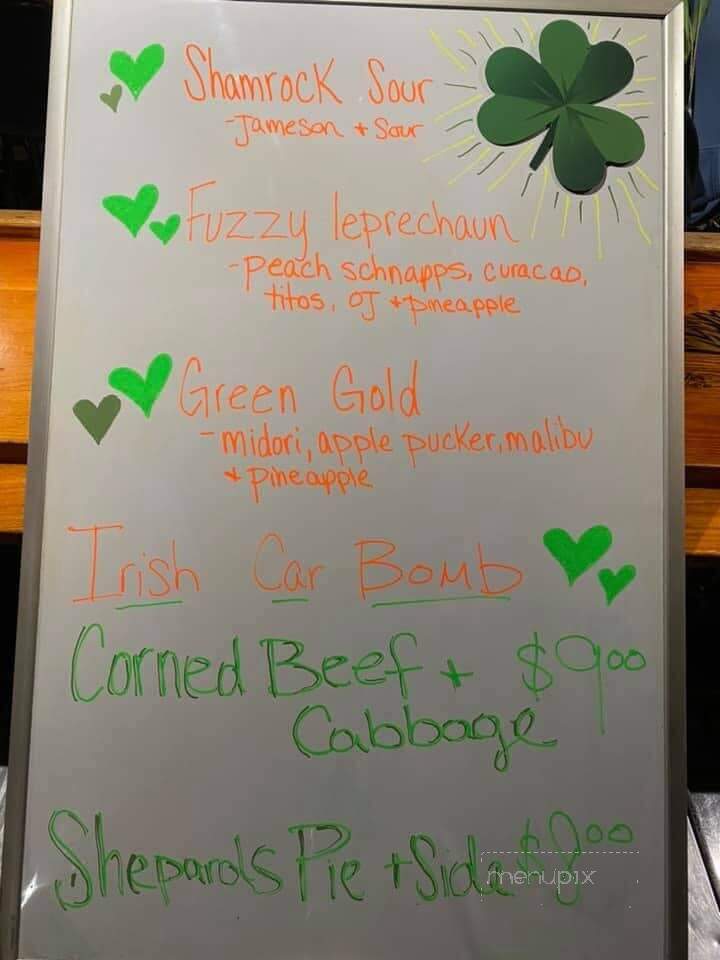 Shamrock Sour
-Jameson + Sour
Fuzzy leprechaun
-peach schnapps, curacao,
titos, OJ + pineapple
Green Gold
-midori, apple pucker, malibu
+ pineapple
Irish Car Bomb
Corned Beef + $9.00
Cabbage
Shepards Pie + Side $8.00
menupix